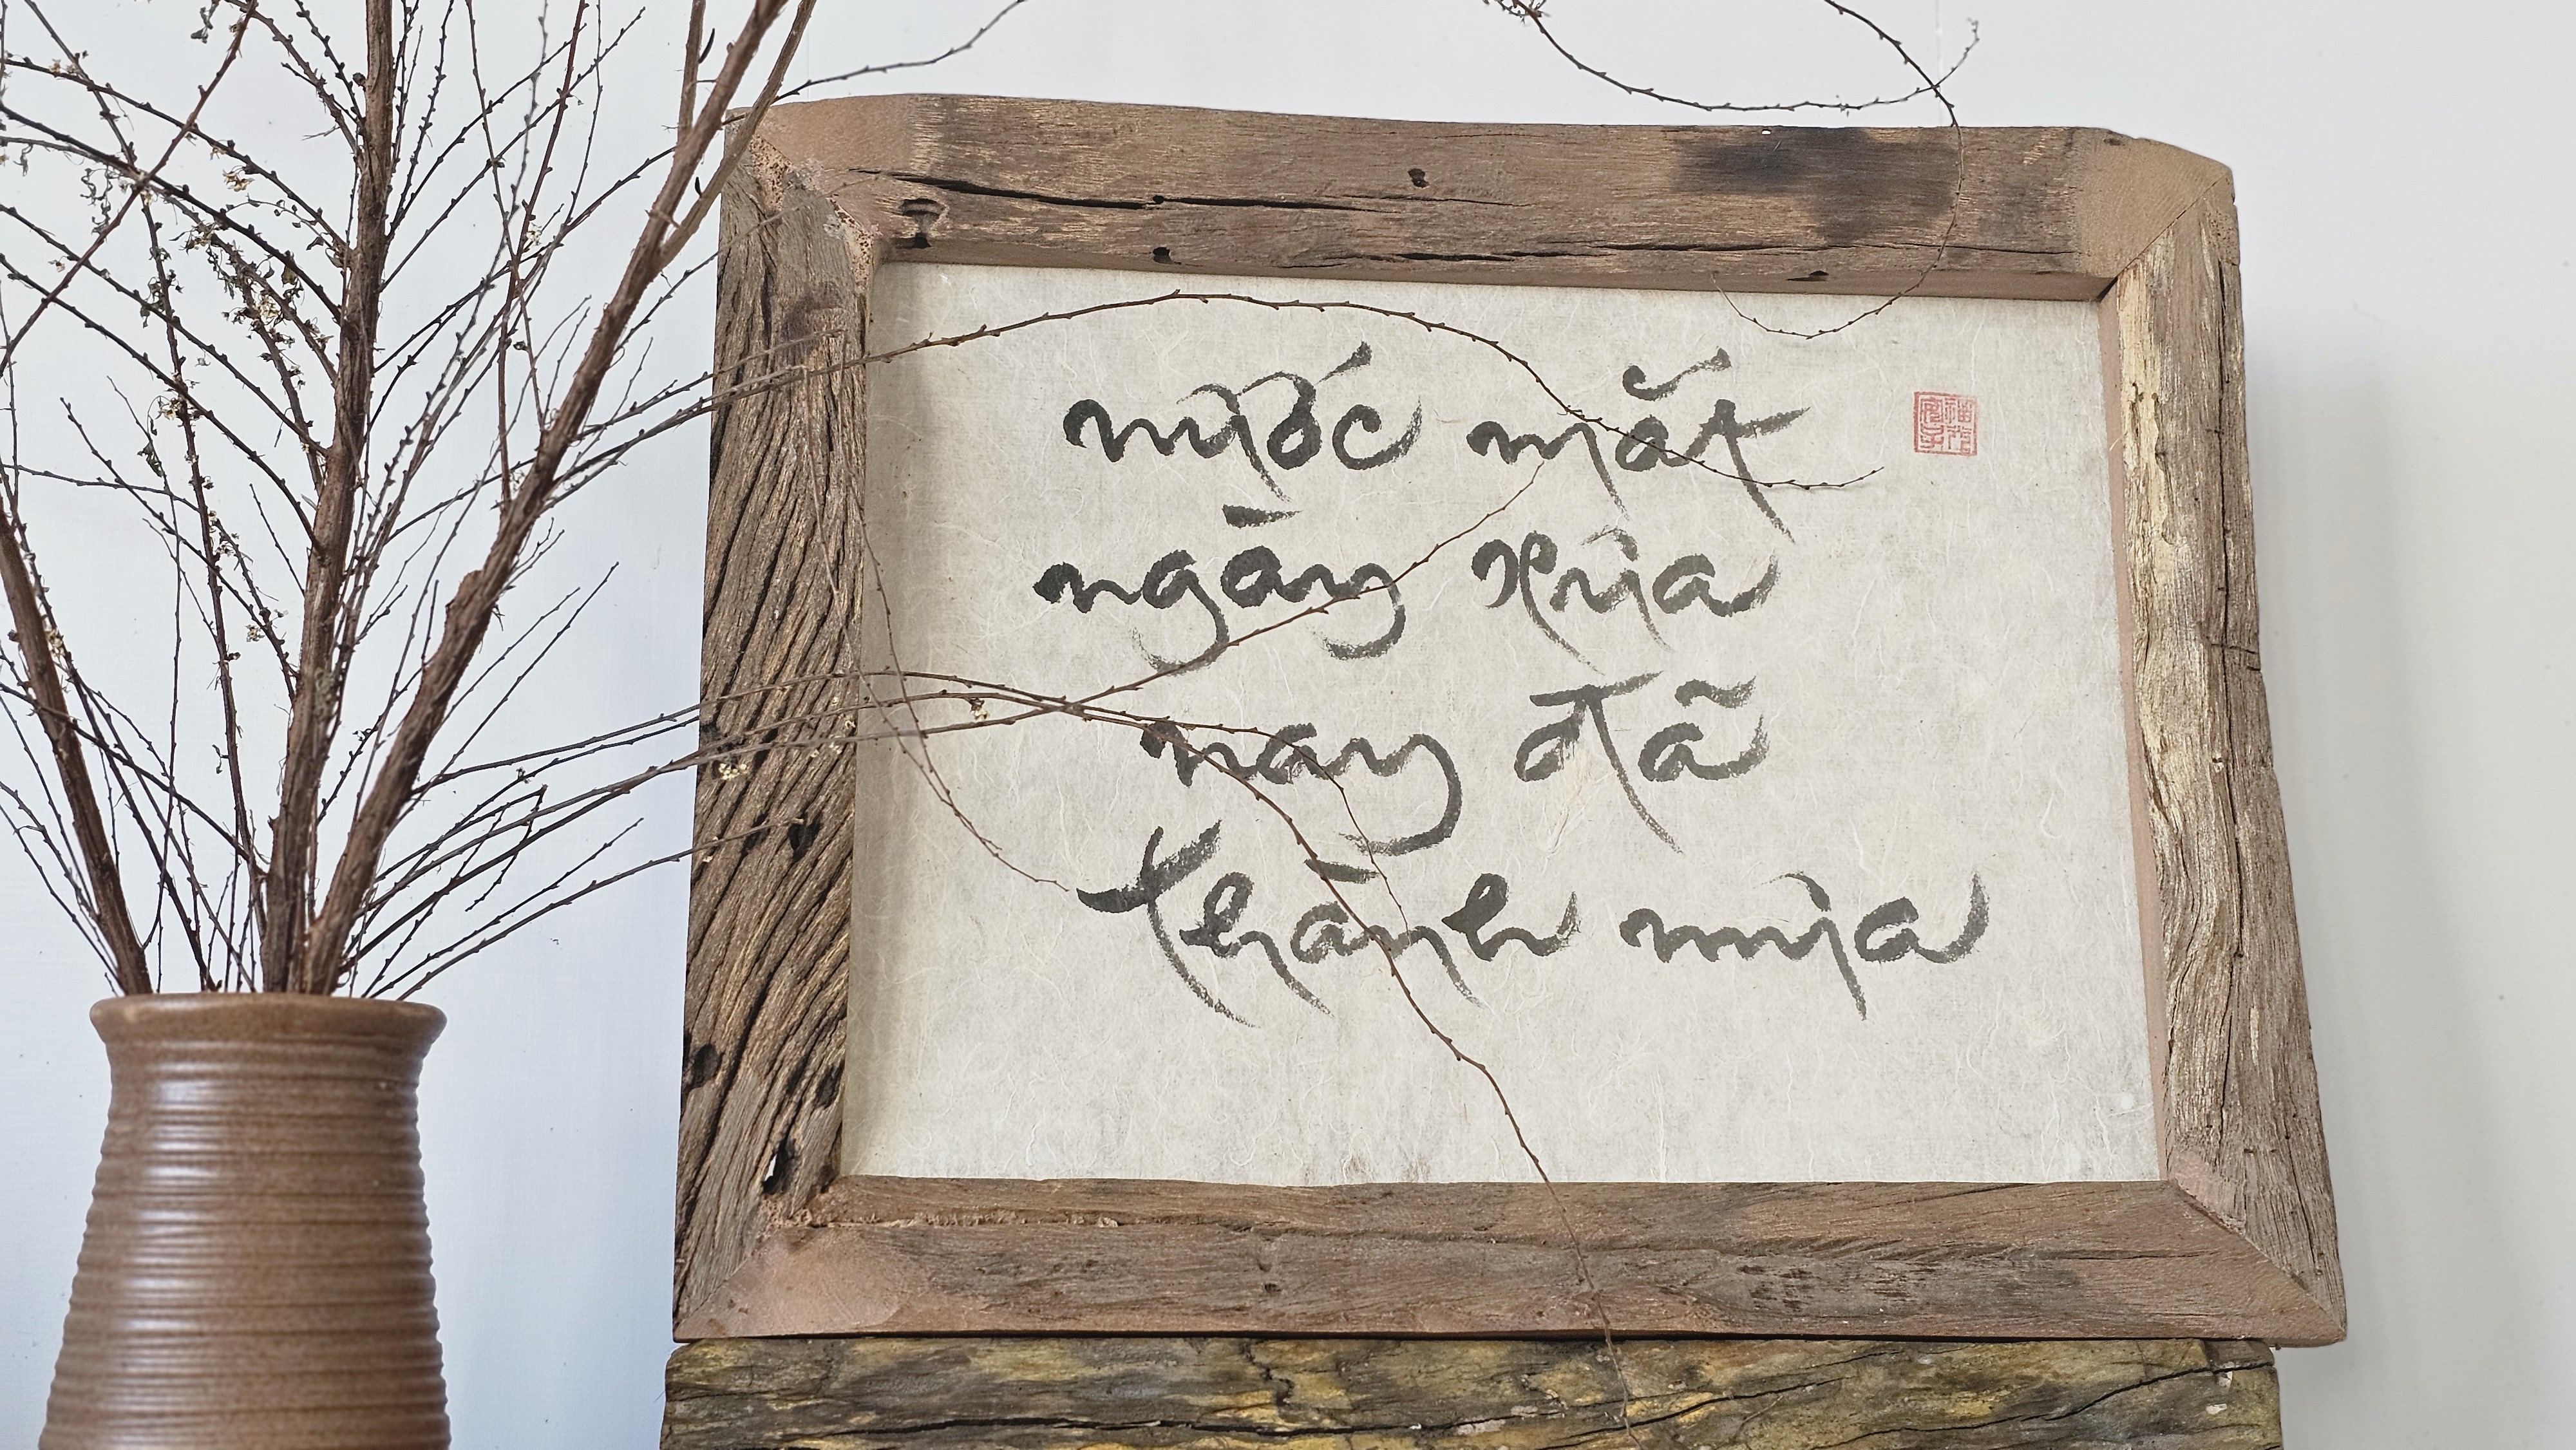 nước mắt
ngày xưa
nay đã
thành mưa